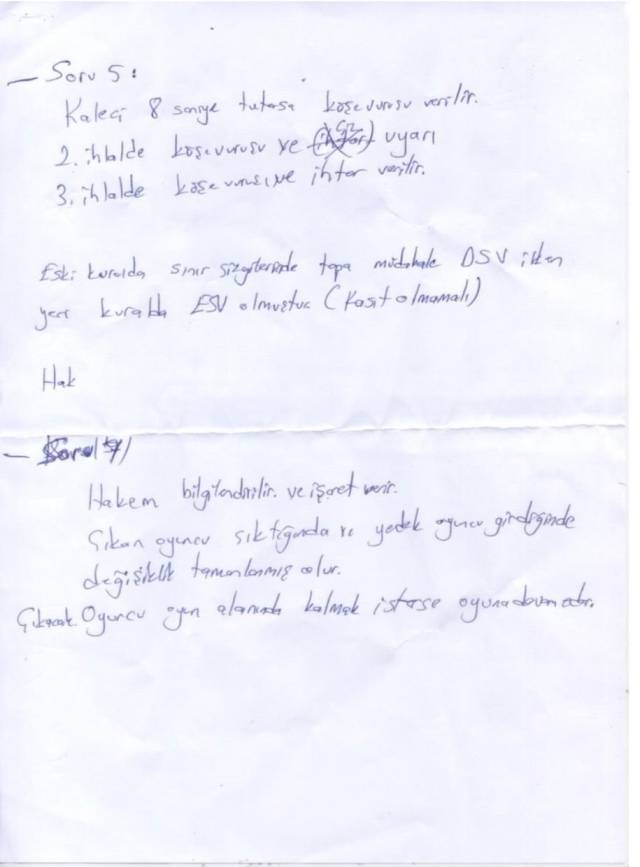 - Soru 5:
Kaleci 8 saniye tutarsa köşe vuruşu verilir.
2. ihlalde köşe vuruşu ve uyarı
3. ihlalde köşe vuruşu ve ihtar verilir.
Eski kuralda sınır çizgilerinde topa müdahale DSV iken
yeni kuralda ESV olmuştur (Kasıt olmamalı)
Hak
- Soru 7)
Hakem bilgilendirilir. ve işaret verir.
Çıkan oyuncu çıktığında ve yedek oyuncu girdiğinde
değişiklik tamamlanmış olur.
Çıkacak Oyuncu oyun alanında kalmak isterse oyuna devam eder.